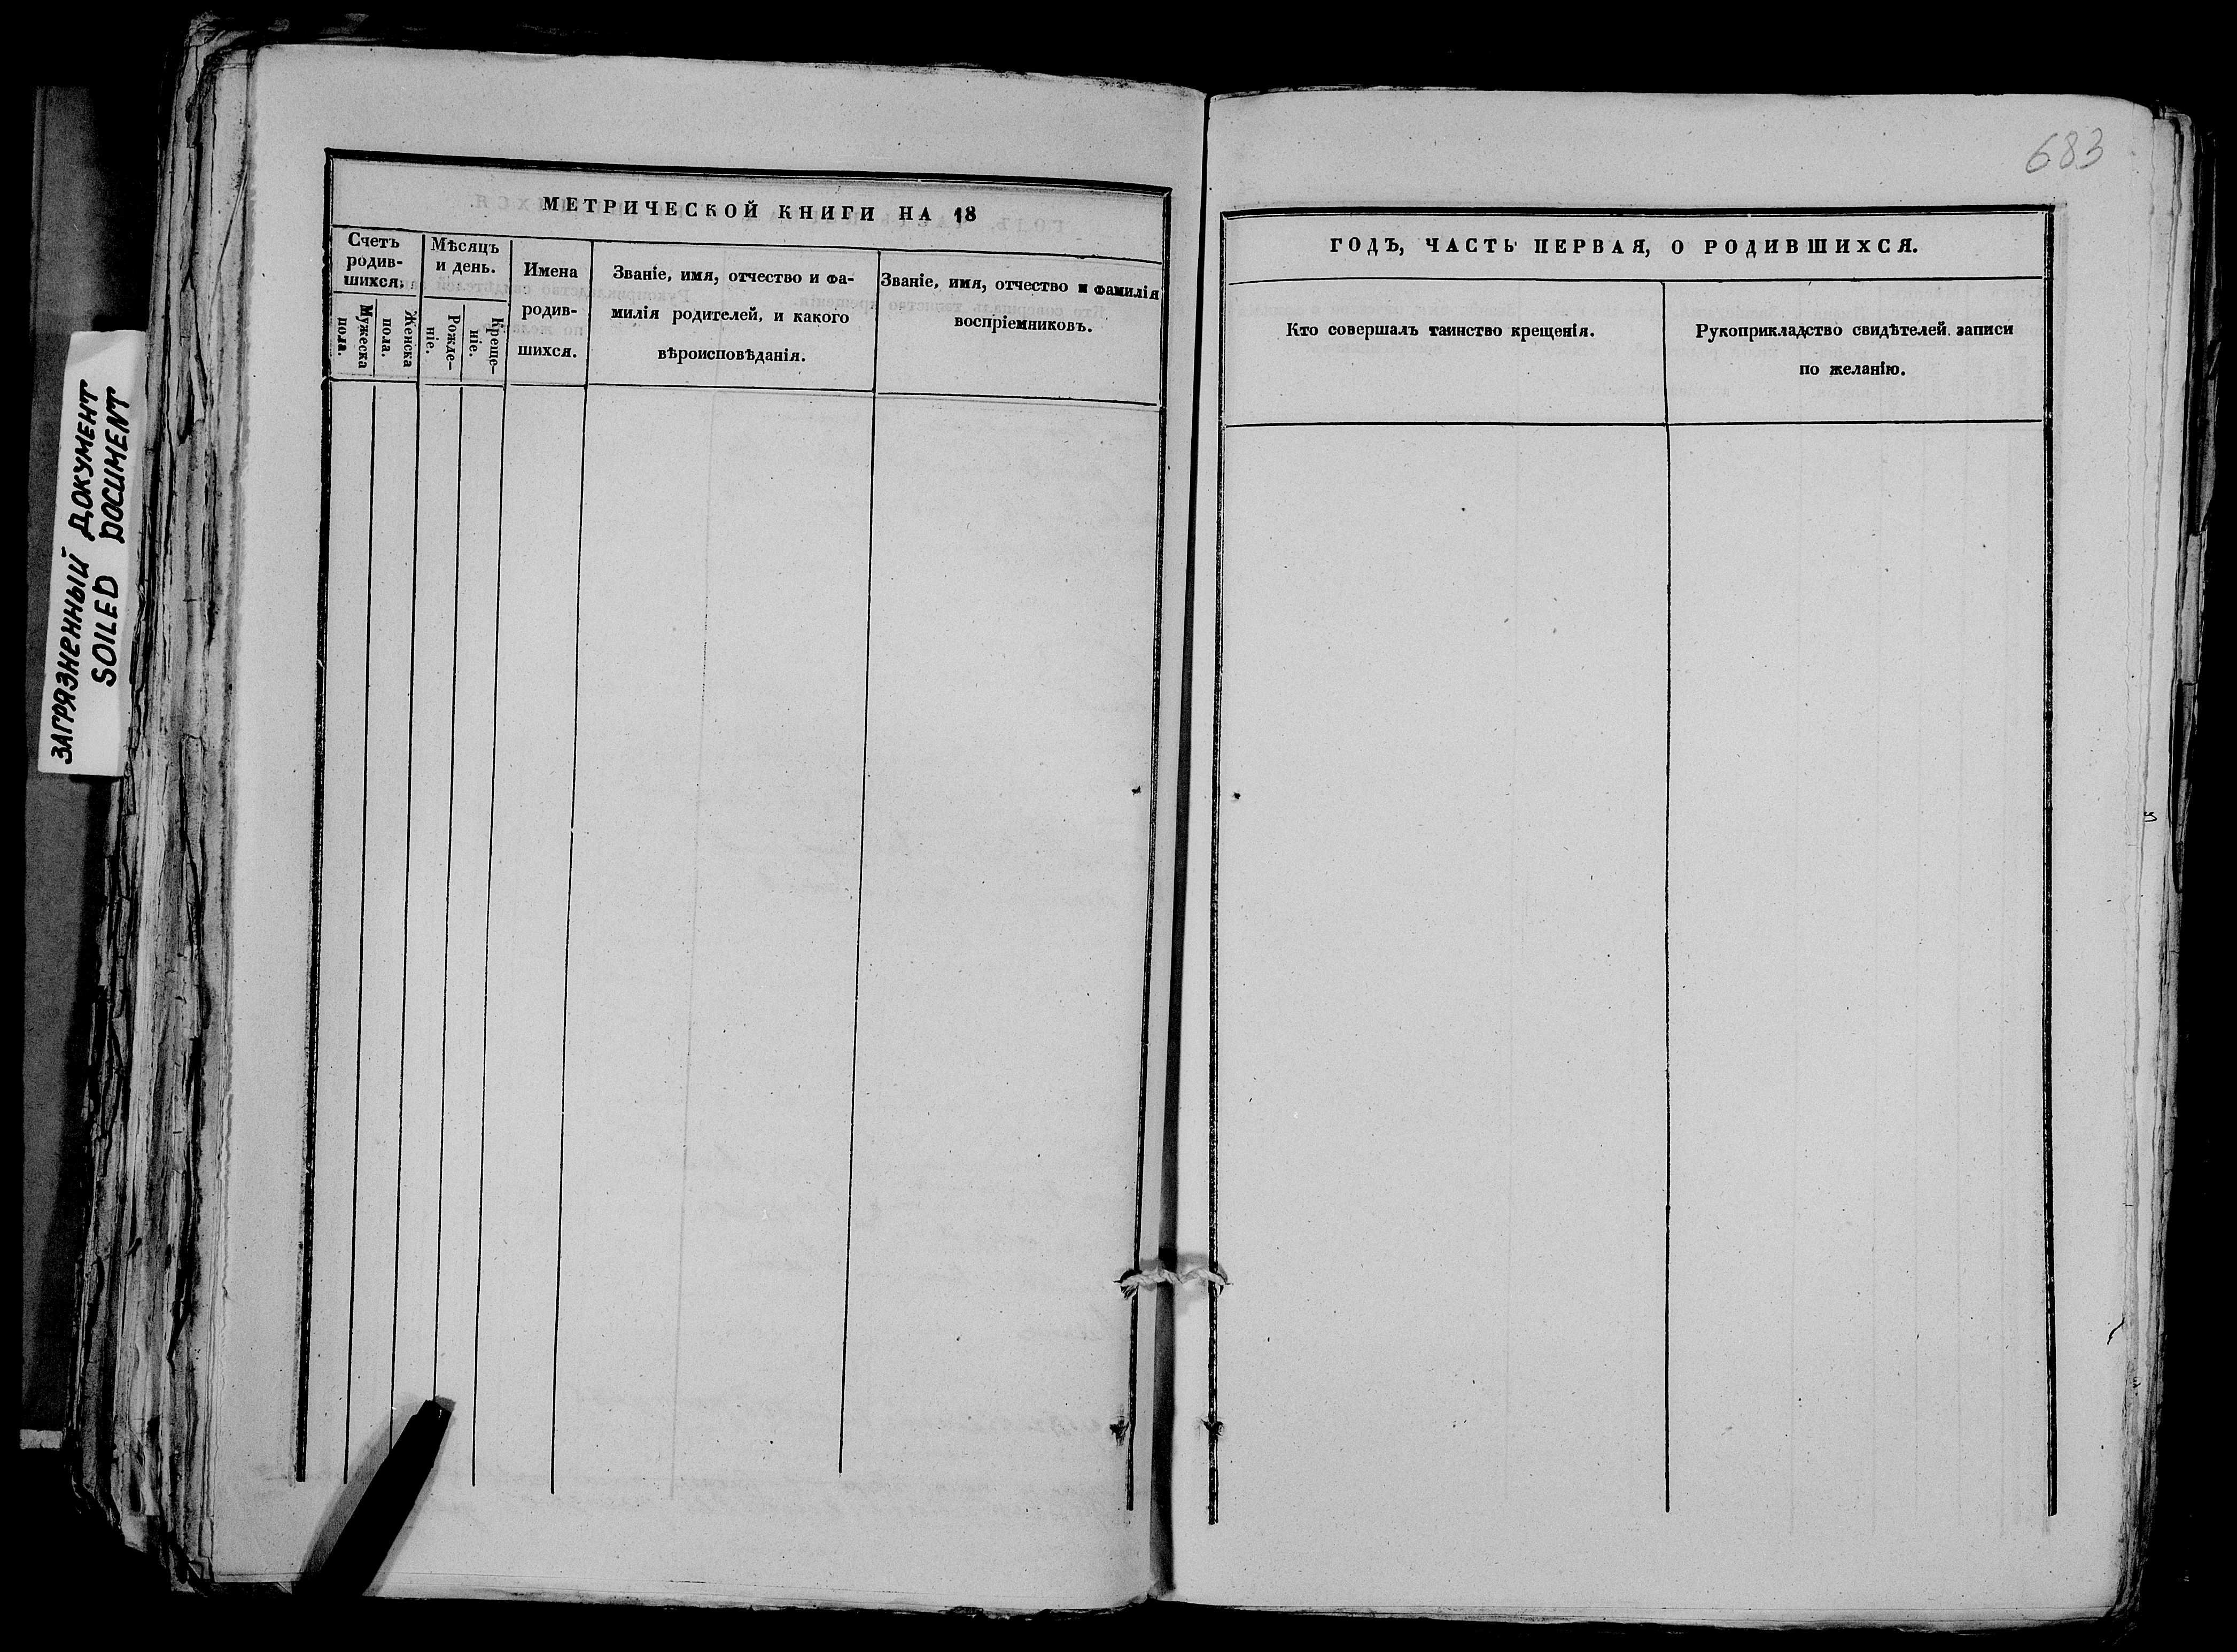 683
МЕТРИЧЕСКОЙ КНИГИ НА 18
Счетъ
родив-
шихся.
Мужеска
пола.
Женска
пола.
Мѣсяцъ
и день.
Рожде-
ніе.
Креще-
ніе.
Имена
родив-
шихся.
Званіе, имя, отчество и фа-
милія родителей, и какого
вѣроисповѣданія.
Званіе, имя, отчество и фамилія
воспріемниковъ.
ГОДЪ, ЧАСТЬ ПЕРВАЯ, О РОДИВШИХСЯ.
Кто совершалъ таинство крещенія.
Рукоприкладство свидѣтелей записи
по желанію.
ЗАГРЯЗНЕННЫЙ ДОКУМЕНТ
SOILED DOCUMENT